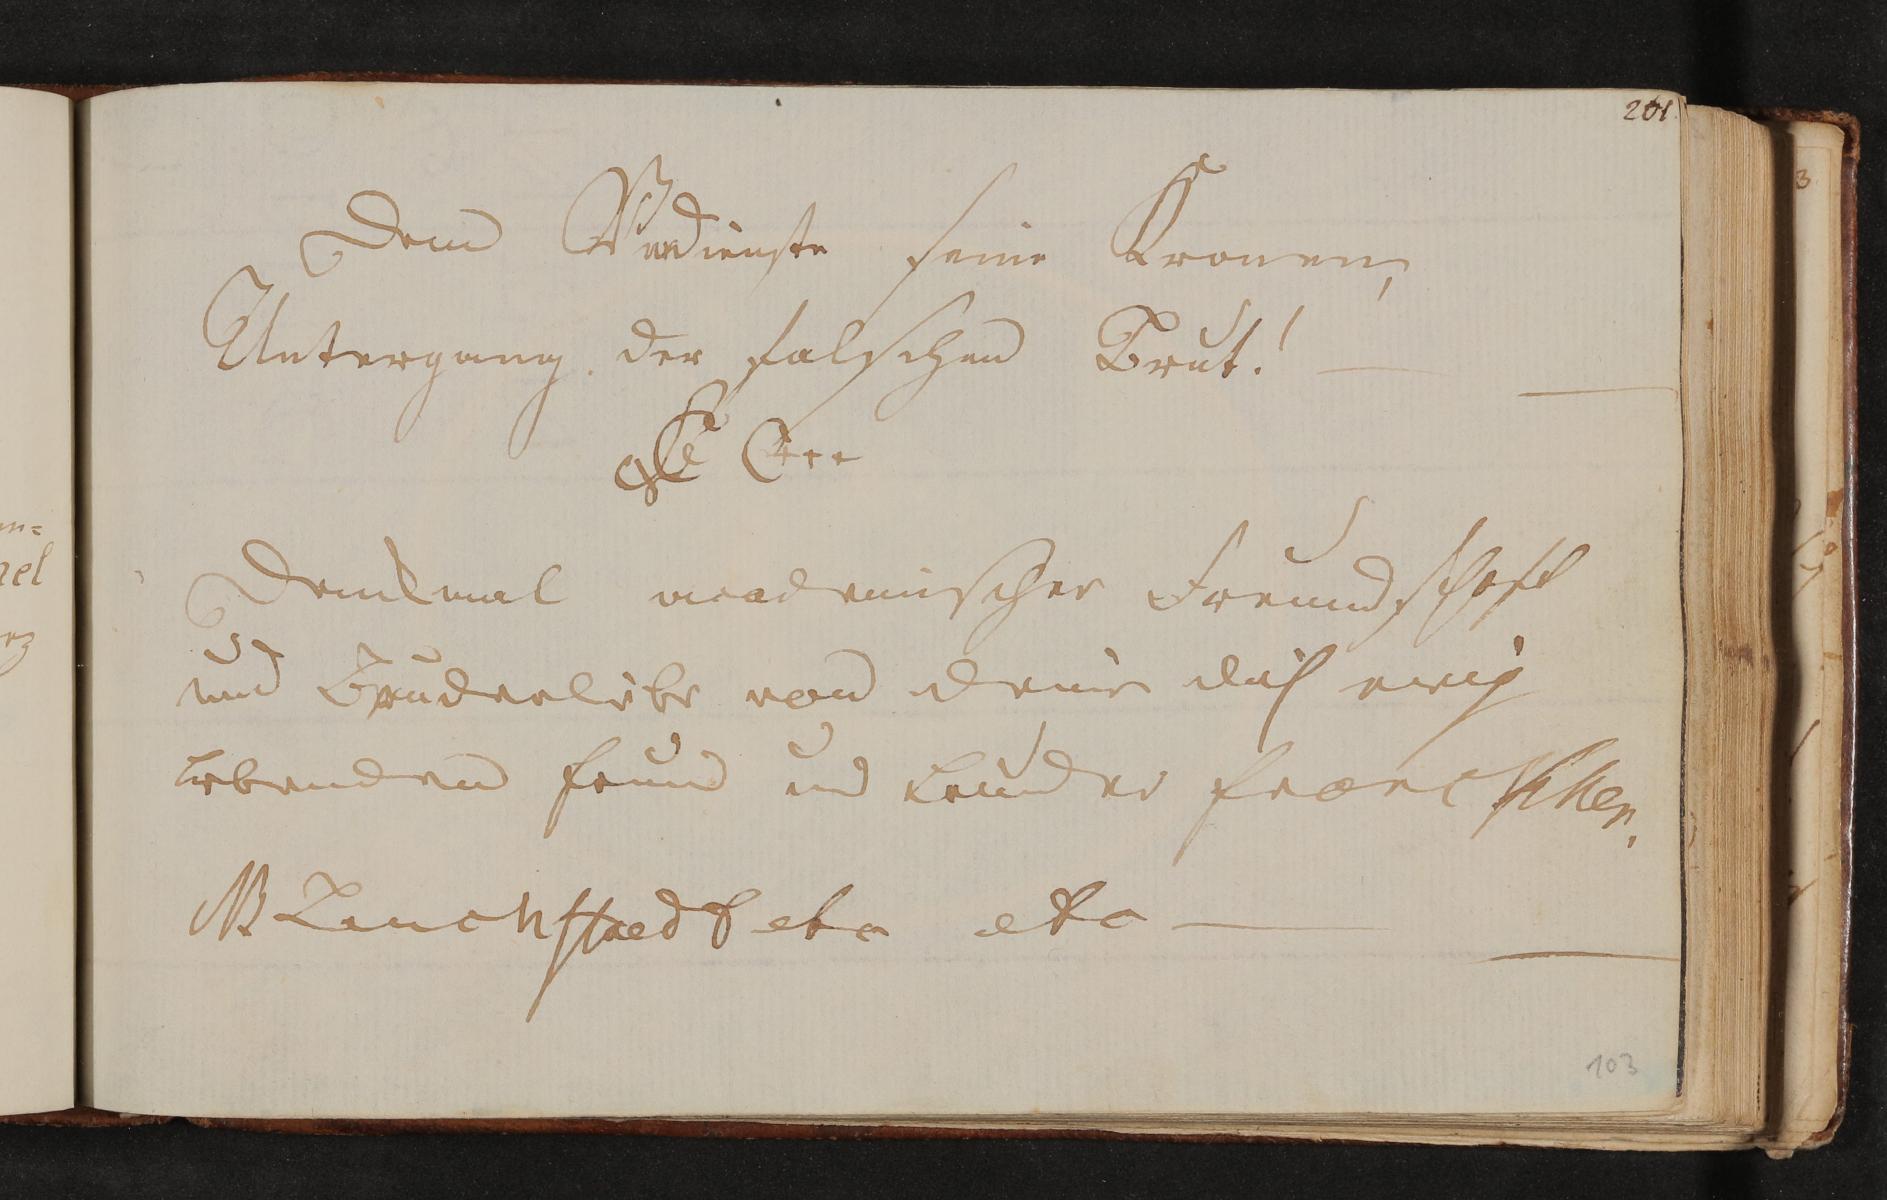 201.
Dem Verdienste seine Kronen,
Untergang der falschen Brut!
Denkmal academischer Freundschaft
und Bruderliebe von deine dich ewig
liebenden freund und bruder
NB Lauchstaedt etc etc
103